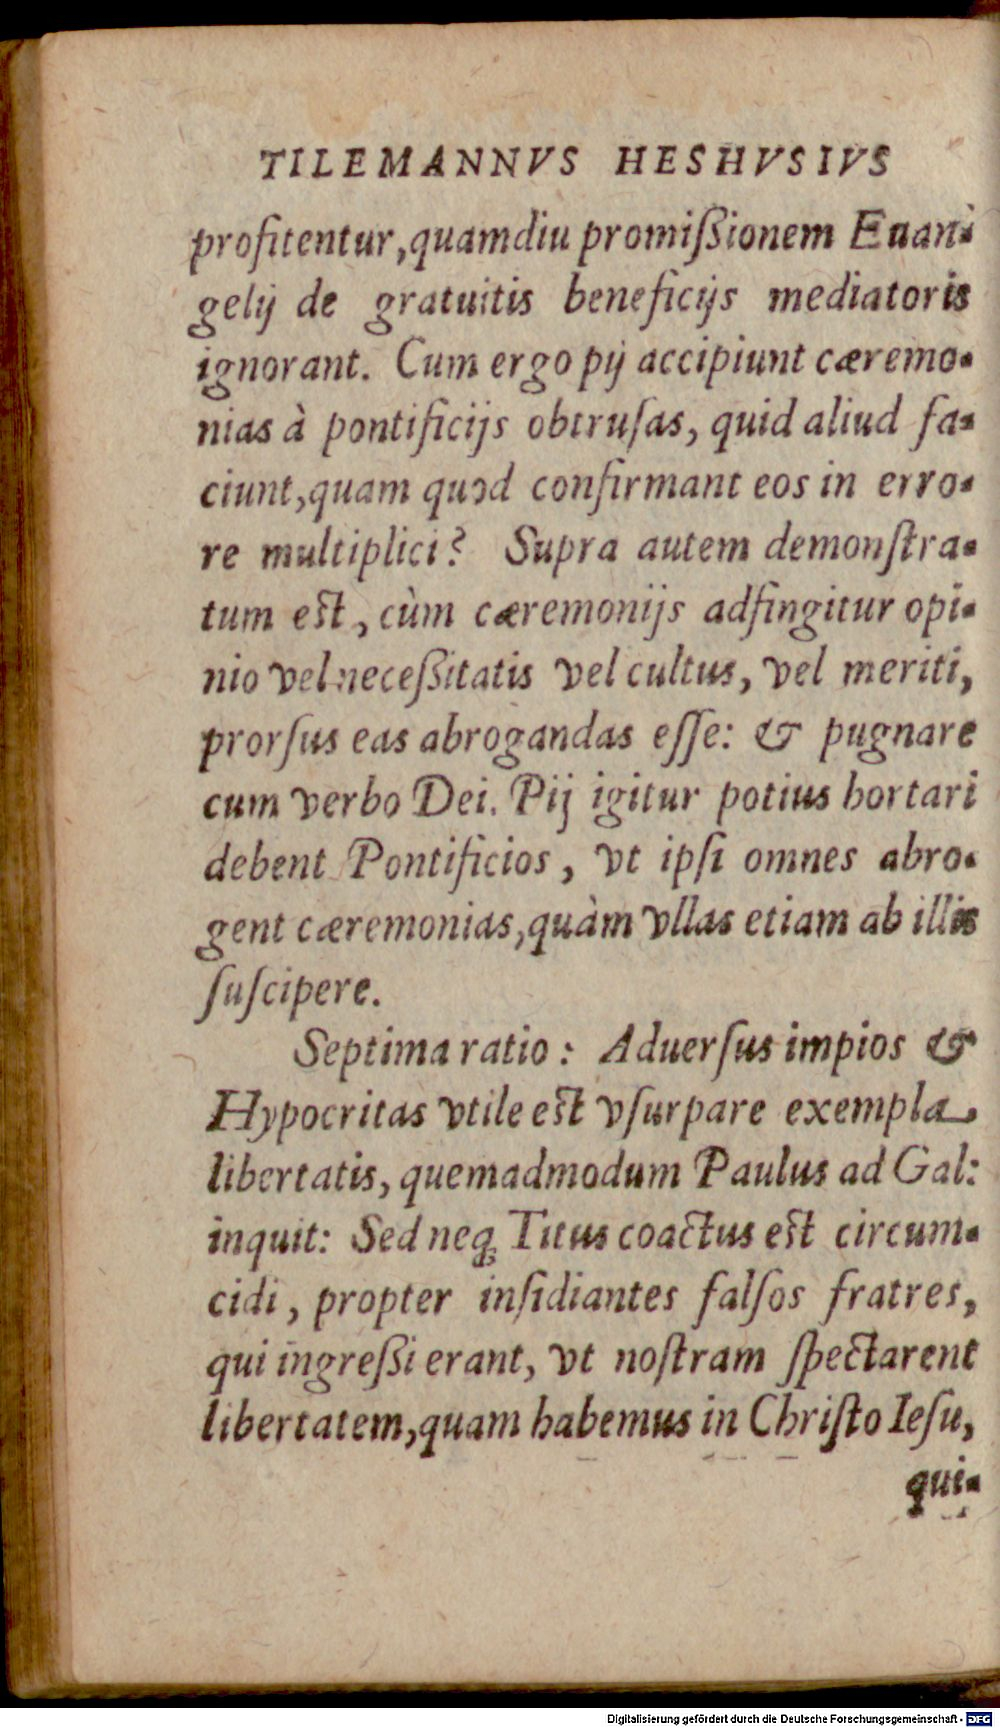 TILEMANNVS HESHVSIVS
profitentur, quamdiu promißionem Euan-
gelij de gratuitis beneficijs mediatoris
ignorant. Cum ergo pij accipiunt cæremo-
nias à pontificijs obtruſas, quid aliud fa-
ciunt, quam quod confirmant eos in erro-
re multiplici? Supra autem demonſtra-
tum eſt, cùm cæremonijs adfingitur opi-
nio vel neceßitatis vel cultus, vel meriti,
prorſus eas abrogandas eſſe: & pugnare
cum verbo Dei. Pij igitur potius hortari
debent Pontificios, vt ipſi omnes abro-
gent cæremonias, quàm vllas etiam ab illis
ſuſcipere.
Septima ratio: Aduerſus impios &
Hypocritas vtile eſt vſurpare exempla
libertatis, quemadmodum Paulus ad Gal:
inquit: Sed neq; Titus coactus eſt circum-
cidi, propter inſidiantes falſos fratres,
qui ingreßi erant, vt noſtram ſpectarent
libertatem, quam habemus in Chriſto Ieſu,
qui-
Digitalisierung gefördert durch die Deutsche Forschungsgemeinschaft - DFG